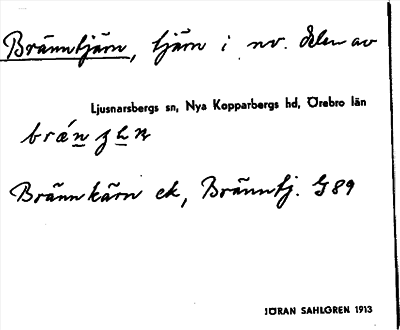 Bränntjärn, tjärn i nv. delen av
Ljusnarsbergs sn, Nya Kopparbergs hd, Örebro län
Brännkärn ek, Bränntj. G89
JÖRAN SAHLGREN 1913